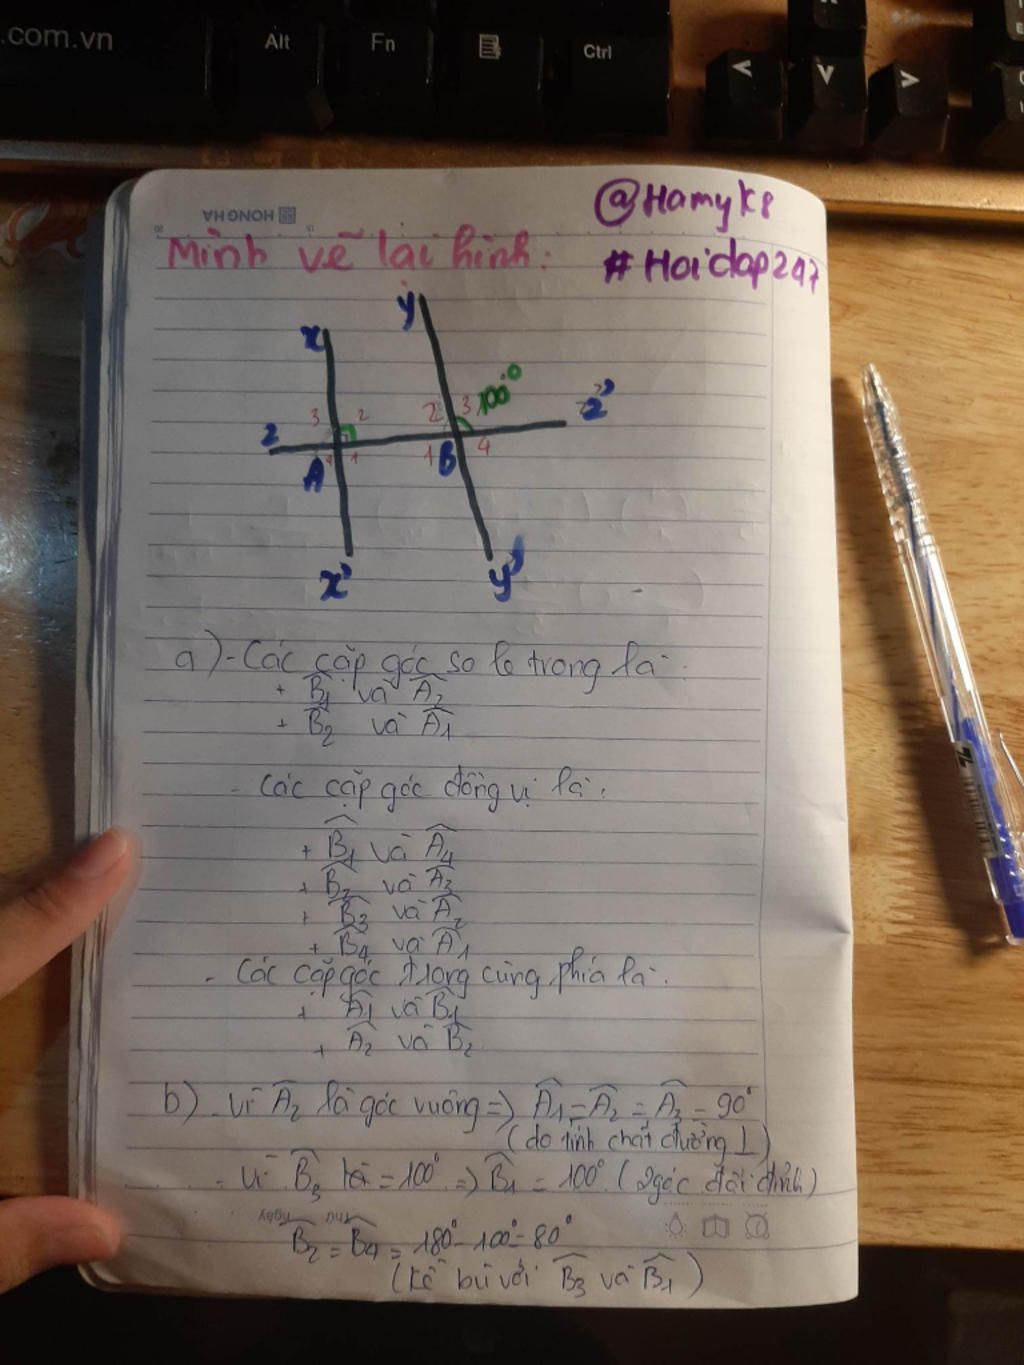 .com.vn
Alt
Fn
Ctrl
HONG HA
@HamyK8
#Hoidap247
Mình vẽ lại hình:
x
y
100°
z'
3 2
2 3
z
A
4 1
1
B
4
x'
y'
a) - Các cặp góc so le trong là:
+ B̂₁ và Â₂
+ B̂₂ và Â₁
- Các cặp góc đồng vị là:
+ B̂₁ và Â₄
+ B̂₂ và Â₃
+ B̂₃ và Â₂
+ B̂₄ và Â₁
- Các cặp góc trong cùng phía là:
+ Â₁ và B̂₁
+ Â₂ và B̂₂
b) - Vì Â₂ là góc vuông => Â₁ = Â₂ = Â₃ = 90°
(do tính chất đường ⊥)
- Vì B̂₃ = 100° => B̂₁ = 100° (2 góc đối đỉnh)
Thứ
Ngày
B̂₂ = B̂₄ = 180° - 100° = 80°
(kề bù với B̂₃ và B̂₁)